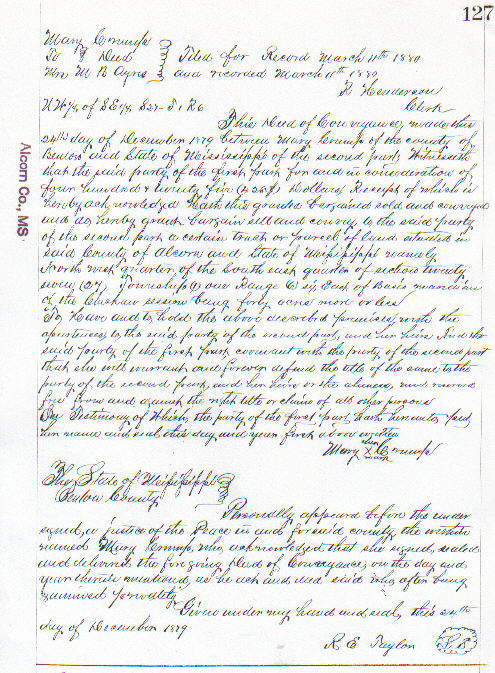 127
Mary Crump
To } Deed
Mrs M B Ayres
Filed for Record March 11th 1880
and recorded March 11th 1880
R Henderson
Clerk
N W 1/4 of SE 1/4 S 27 T 1 R 6
Alcorn Co., MS.
This Deed of Conveyance, made this
24th day of December 1879 between Mary Crump of the county of
Benton and State of Mississippi of the second part, Witnesseth
that the said party of the first part for and in consideration of
four hundred & twenty five (425$) Dollars, Receipt of which is
hereby acknowledged Hath this granted bargained sold and conveyed
and do hereby grant bargain sell and convey to the said party
of the second part a certain tract or parcel of land situated in
said County of Alcorn and State of Mississippi namely
North west quarter of the South east quarter of section twenty
seven (27) Township (1) one Range 6 six East of Basis meridian
of the Chickasaw session being forty acres more or less
To Have and to hold the above described premises with the
apurtenances to the said party of the second part, and her heirs And the
said party of the first part covenant with the party of the second part
that she will warrant and forever defend the title of the same to the
party of the second part, and her heirs
free from and against the right title or claim of all other persons
In Testimony of Which, the party of the first part, hath hereunto
her name and seal this day and year first above written
Mary her X mark Crump
The State of Mississippi }
Benton County
Personally appeared before the under
signed, a justice of the Peace in and for said county, the within
named Mary Crump, who acknowledged that she signed, sealed
and delivered the foregoing Deed of Conveyance, on the day and
year therein mentioned, as her act and deed said after being
examined privately
Given under my hand and seal, this 24th
day of December 1879
R E Taylor L S